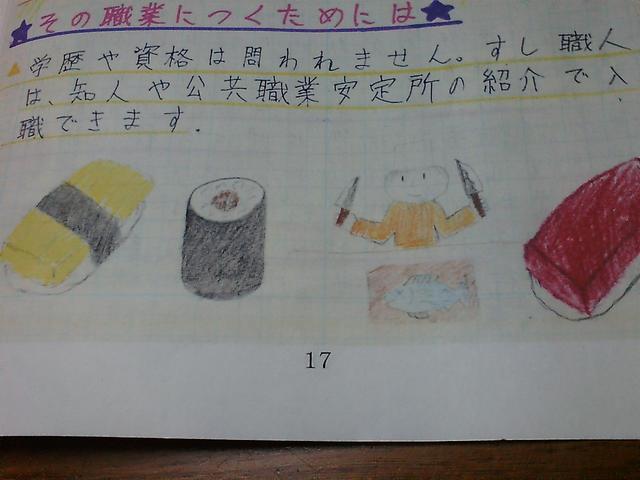 ★その職業につくためには★
▲学歴や資格は問われません。すし職人
は、知人や公共職業安定所の紹介で入
職できます.
17